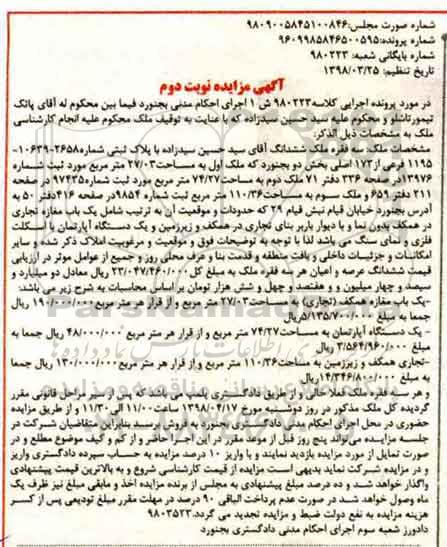 شماره صورت مجلس:۹۸۰۹۰۰۵۸۴۵۱۰۰۸۴۶
شماره پرونده:۹۶۰۹۹۸۵۸۴۶۵۰۰۵۹۵
شماره بایگانی شعبه: ۹۸۰۲۲۳
تاریخ تنظیم: ۱۳۹۸/۰۳/۲۵
آگهی مزایده نوبت دوم
در مورد پرونده اجرایی کلاسه۹۸۰۲۲۳ ش ۱ اجرای احکام مدنی بجنورد فیما بین محکوم له آقای بابک
تیمورتاشلو و محکوم علیه سید حسین سیدزاده که با عنایت به توقیف ملک محکوم علیه انجام کارشناسی
ملک به مشخصات ذیل الذکر:
مشخصات ملک:سه فقره ملک ششدانگ آقای سید حسین سیدزاده با پلاک ثبتی شماره۲۶۵۸-۱۰۶۳۹-
۱۱۹۵ فرعی از۱۷۳ اصلی بخش دو بجنورد که ملک اول به مساحت۲۷/۰۳ متر مربع مورد ثبت شماره
۱۳۹۷۶در صفحه ۳۳۶ دفتر ۷۱ ملک دوم به مساحت ۷۴/۲۷ متر مربع مورد ثبت شماره۹۷۴۳۵ در صفحه
۲۱۱ دفتر ۶۵۹ و ملک سوم به مساحت۱۱۰/۳۶ متر مربع ثبت شماره ۹۸۵۴در صفحه ۴۱۶دفتر ۵۰ به
آدرس بجنورد خیابان قیام نبش قیام ۲۹ که حدودات و موقعیت آن به ترتیب شامل یک باب مغازه تجاری
در همکف بدون نما و با دیوار باربر بنای تجاری در همکف و زیرزمین و یک دستگاه آپارتمان با اسکلت
فلزی و نمای سنگ می باشد لذا با توجه به توضیحات فوق و موقعیت و مرغوبیت املاک ذکر شده و سایر
امکانات و جزئیات داخلی و بافت منطقه و قدمت بنا و عرف محلی روز و جمیع از عوامل موثر در ارزیابی
قیمت ششدانگ عرصه و اعیان هر سه فقره ملک به مبلغ کل۲۳/۰۴۷/۴۶۰/۰۰۰ ریال معادل دو میلیارد و
سیصد و چهار میلیون و و هفتصد و چهل و شش هزار تومان بر اساس محاسبات به شرح زیر می باشد:
-یک باب مغازه همکف (تجاری) به مساحت۲۷/۰۳ متر مربع و از قرار هر متر مربع۱۹۰/۰۰۰/۰۰۰ ریال
جمعا به مبلغ ۵/۱۳۵/۷۰۰/۰۰۰ریال
- یک دستگاه آپارتمان به مساحت۷۴/۲۷ متر مربع و از قرار هر متر مربع ۴۸/۰۰۰/۰۰۰ ریال جمعا به
مبلغ ۳/۵۶۴/۹۶۰/۰۰۰ ریال
-تجاری همکف و زیرزمین به مساحت۱۱۰/۳۶ متر مربع و از قرار هر متر مربع۱۳۰/۰۰۰/۰۰۰ ریال جمعا
به مبلغ ۱۴/۳۴۶/۸۰۰/۰۰۰ریال
و هر سه فقره ملک فعلا خالی و از طریق دادگستری پلمپ می باشد که پس از سیر مراحل قانونی مقرر
گردیده کل ملک مذکور در روز دوشنبه مورخ ۱۳۹۸/۰۴/۱۷ ساعت۱۱/۰۰ الی ۱۱/۳۰ و از طریق مزایده
حضوری در محل اجرای احکام مدنی دادگستری بجنورد به فروش برسد بنابراین متقاضیان شرکت در
جلسه مزایده می‌تواند پنج روز قبل از موعد مقرر در این اجرا حاضر و از کم و کیف موضوع مطلع و در
صورت تمایل از مورد مزایده بازدید نمایند و با واریز ۱۰ درصد مزایده به حساب سپرده دادگستری واریز
و در مزایده شرکت نماید بدیهی است مزایده از قیمت کارشناسی شروع و به بالاترین قیمت پیشنهادی
واگذار خواهد شد و ده درصد مبلغ پیشنهادی به مجلس از برنده مزایده اخذ و مابقی مبلغ نیز ظرف یک
ماه وصول خواهد شد در صورت عدم پرداخت الباقی ۹۰ درصد در مهلت مقرر مبلغ تودیعی پس از کسر
هزینه مزایده به نفع دولت ضبط و مزایده تجدید می گردد.۹۸۰۳۵۲۳
دادورز شعبه سوم اجرای احکام مدنی دادگستری بجنورد